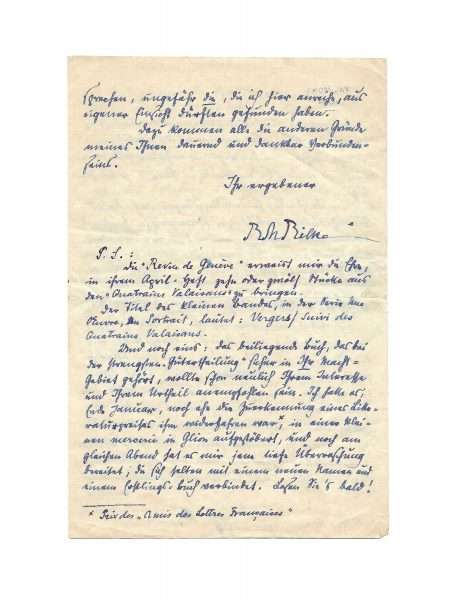 sprechen, ungefähr die, die ich hier anreihe, aus
eigener Einsicht dürften gefunden haben.
Dazu kommen alle die anderen Gründe
meines Ihnen dauernd und dankbar Verbunden-
seins.
Ihr ergebener
RMRilke
P. S. :
Die "Revue de Genève" erweist mir die Ehre,
in ihrem April-Heft zehn oder zwölf Stücke aus
den "Quatrains Valaisans" zu bringen.
Der Titel des kleinen Bandes, in der Serie Une
Œuvre, Un Portrait, lautet: Vergers suivi des
Quatrains Valaisans.
Und noch eins: das beiliegende Buch, das bei
der strengsten Gütertheilung sicher in Ihr Macht-
Gebiet gehört, wollte schon neulich Ihrem Interesse
und Ihrem Urtheil anempfohlen sein. Ich hatte es,
Ende Januar, noch ehe die Zuerkennung eines Litte-
raturpreises ihm widerfahren war*, in einer klei-
nen mercerie in Glion aufgestöbert, und noch am
gleichen Abend hat es mir jene tiefe Überraschung
bereitet, die sich selten mit einem neuen Namen und
einem Erstlings-buch verbindet. Lesen Sie's bald!
* Prix des "Amis des Lettres Françaises"